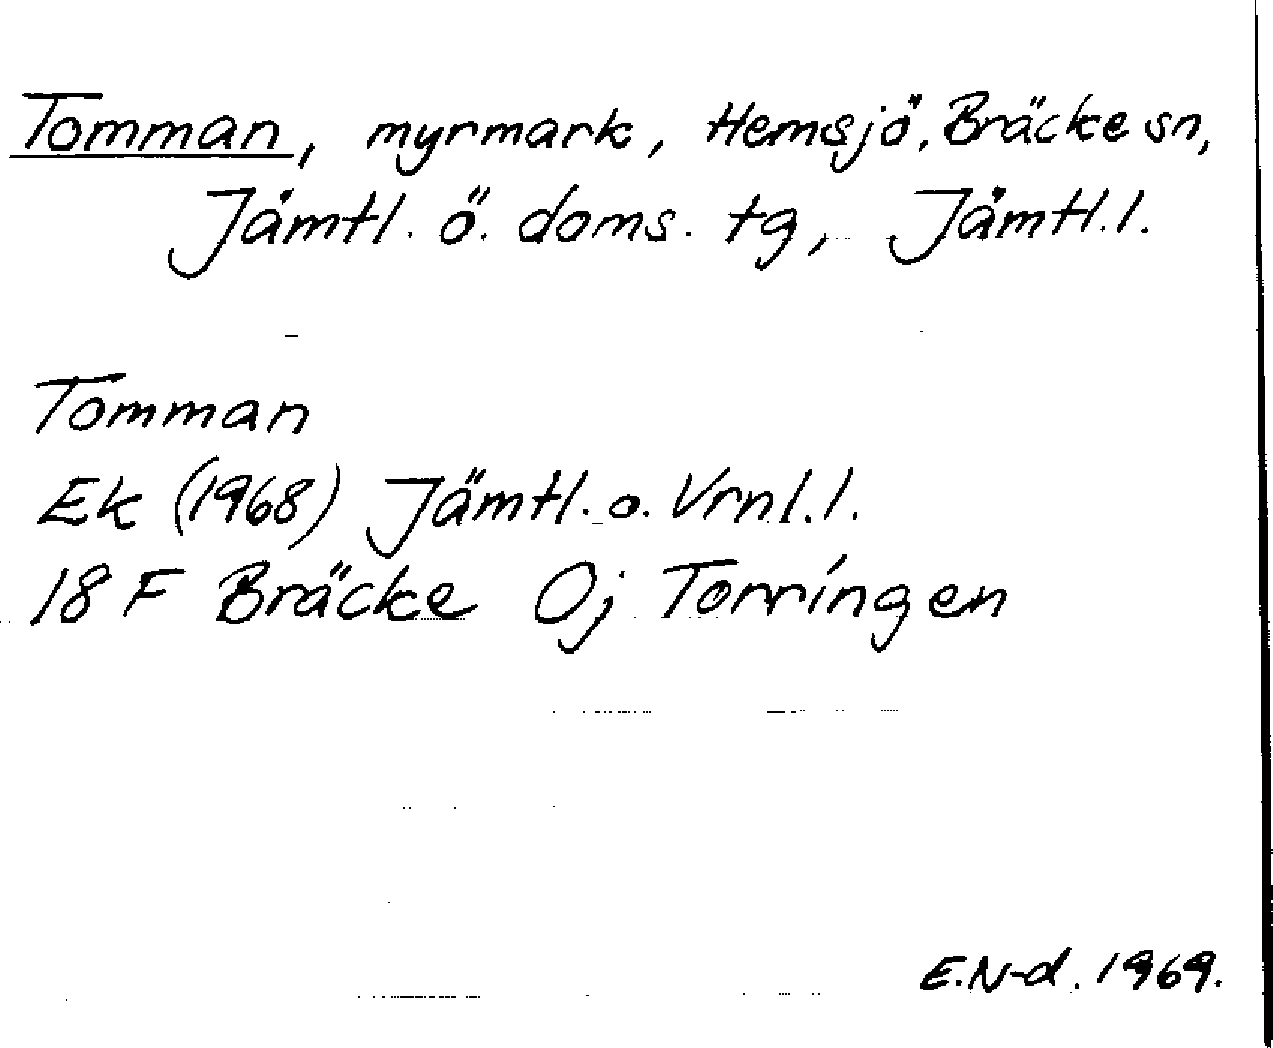 Tomman, myrmark, Hemsjö, Bräcke sn,
Jämtl. ö. doms. tg, Jämtl. l.
Tomman
Ek (1968) Jämtl. o. Vrnl. l.
18 F Bräcke Oj Torringen
E.N-d. 1969.